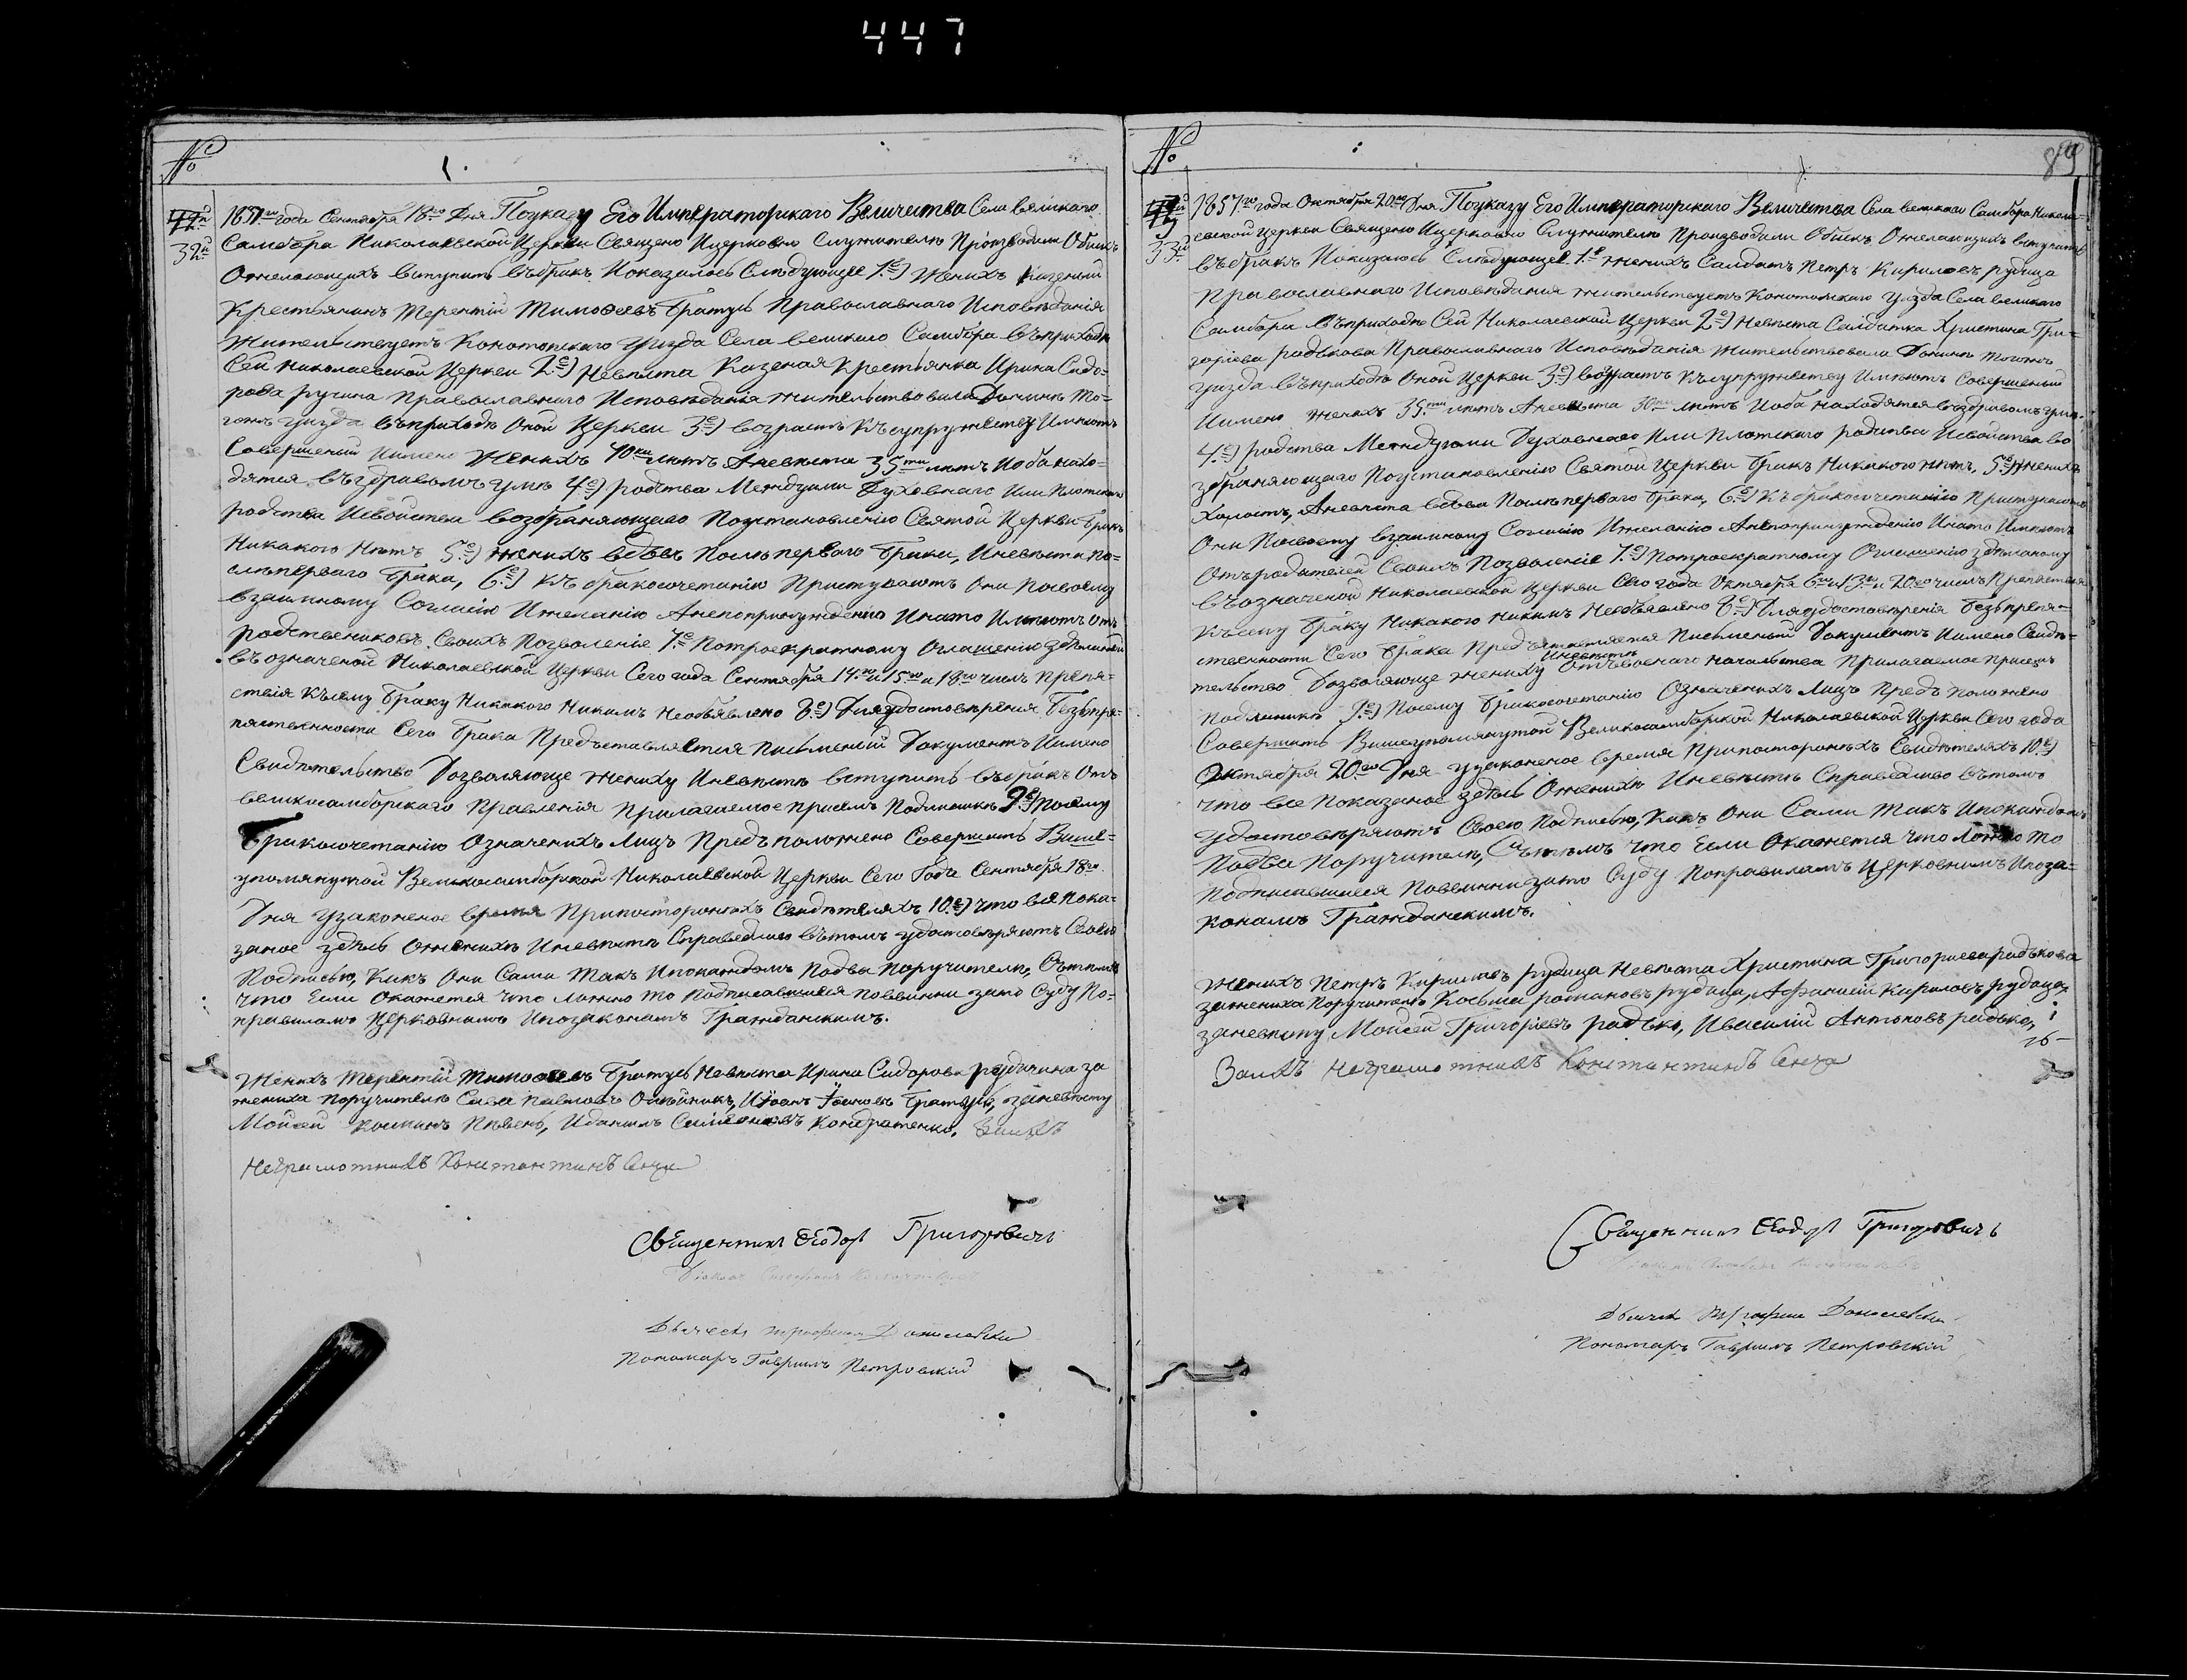 447
№
32й
1857го года Сентября 18го Дня По указу Его Императорскаго Величества Села великаго
Самбора Николаевской Церкви Священо Ицерковно Служителю Производили Обыскъ
Ожелающихъ вступить въбракъ Ипоказалось Слѣдующее 1е) Женихъ Казеный
Крестьянинъ Терентій Тимоѳеевъ Братусь Православнаго Исповѣданія
Жительствуетъ Конотопскаго уѣзда Села великаго Самбора въприходѣ
Сей Николаевской Церкви 2е) Невѣста Казеная Крестьянка Ирина Сидо-
рова Православнаго Исповѣданія жительствовала Донынѣ То-
гожъ уѣзда въприходѣ Оной Церкви 3е) возрастъ Къ супружеству Имѣютъ
Совершеный Иимено Женихъ 40ка лѣтъ Аневѣста 35ти лѣтъ Иоба нахо-
дятся въздравомъ умѣ 4е) родства Междуими Духовнаго Или Плотскаго
родства Исвойства возбраняющаго Поустановленію Святой Церкви Бракъ
Никакого Нѣтъ 5е) Женихъ вдовъ Послѣ перваго Брака, Иневѣста по-
слѣ перваго Брака, 6е) Къ бракосочетанію Приступаютъ Они Посвоему
взаимному Согласію Ижеланію Анепопринужденію Инато Имѣютъ Отъ
родствениковъ Своихъ Позволеніе 7е Потроекратному Оглашенію зделаному
въозначеной Николаевской Церкви Сего года Сентября 14го и 15го и 18го числъ Препя-
ствія Къ сему Браку Никакого Никимъ Необъявлено 8е) Дляудостовѣренія Безъпре-
пятственности Сего Брака Предъставляется писменый Документъ Иимено
Свидѣтельство Дозволяюще жениху Иневѣстѣ вступить въбракъ Отъ
великосамборскаго Правленія Прилагаемое присемъ Подлиникъ 9е) Посему
Бракосочетанію Означенихъ Лицъ Предъположено Совершить Выше-
упомянутой Великосамборской Николаевской Церкви Сего Года Сентября 18го
Дня узаконеное время Припосторонихъ Свидѣтеляхъ 10е) Что все пока-
заное здѣсь Оженихѣ Иневѣстѣ Справедливо вътомъ удостовѣряютъ Своею
Подписью, Какъ Они Сами Такъ Ипокаждомъ Подва Поручители, Съ тѣмъ
Что Если Окажется что Ложно то Подписавшиеся повинни зато Суду По-
правиламъ Церковнымъ Ипозаконамъ Гражданскимъ.
Женихъ Терентій Тимоѳеевъ Братусь Невѣста Ирина Сидорова за
жениха Поручители Сава Павловъ Олѣйникъ, Иіоанъ Іоановъ Братусь, заневѣсту
Мойсей Пѣвень, Иданилъ Симеоновъ Кондратенко. Занихъ
Неграмотнихъ Константинъ Сенча
Священникъ Ѳеодоръ Григоровичъ
Дьячекъ Трофимъ
Пономарь Гавриилъ Петровскій
№
89
33й
1857го года Октября 20го Дня По указу Его Императорскаго Величества Села великаго Самбора Никола-
евской Церкви Священо Ицерковно Служителю Производили Обыскъ Ожелающихъ вступить
въбракъ Ипоказалось Слѣдующее 1е женихъ Салдатъ Петръ Кириловъ рудица
Православнаго Исповѣданія жительствуетъ Конотопскаго уѣзда Села великаго
Самбора въприходѣ Сей Николаевской Церкви 2е) Невѣста Салдатка Христина Гри-
горіева радькова Православнаго Исповѣданія Жительствовала Донынѣ Тогожъ
уѣзда въприходѣ Оной Церкви 3е) возрастъ Къ супружеству Имѣютъ Совершеный
Иимено женихъ 35ти лѣтъ Аневѣста 30ти лѣтъ Иоба находятся въздравомъ умѣ.
4е) родства Междуими Духовнаго Или Плотскаго родства Исвойства во
збраняющаго Поустановленію Святой Церкви Бракъ Никакого нѣтъ, 5е) Женихъ
Холостъ, Аневѣста вдова Послѣ перваго Брака, 6е) Къ бракосочетанію Приступаютъ
Они Посвоему взаимному Согласію Ижеланію Анепопринужденію Инато Имѣютъ
Отъ родителей Своихъ Позволеніе 7е) Потроекратному Оглашенію зделаному
въозначеной Николаевской Церкви Сего года Октября 6го и 13го и 20го числъ Препятствія
Къ сему Браку Никакого Никимъ Необъявлено 8е) Дляудостовѣренія Безъпрепя-
ственности Сего Брака Предъставляется Писменый Документъ Иимено Свидѣ-
тельство Дозволяюще жениху Иневѣстѣ Отъ Военаго Начальства Прилагаемое Присемъ
Подлиникъ 9е) Посему Бракосочетанію Означенихъ Лицъ Предъположено
Совершить Вышеупомянутой Великосамборской Николаевской Церкви Сего года
Октября 20го Дня узаконеное время Припосторонихъ Свидѣтеляхъ 10е)
Что все Показаное здѣсь Оженихѣ Иневѣстѣ Справедливо вътомъ
удостовѣряютъ Своею Подписью, Какъ Они Сами Такъ Ипокаждомъ
Подва Поручители, Съ тѣмъ что Если Окажется что Ложно то
Подписавшиеся Повинни зато Суду Поправиламъ Церковнимъ Ипоза-
конамъ Гражданскимъ.
Женихъ Петръ Кириловъ рудица Невѣста Христина Григориева радькова
зажениха Поручители Косьма романовъ рудица, Афанасій Кириловъ рудица,
заневѣсту Мойсей Григоріевъ радько, Ивасилій Антоновъ радько,
Занихъ Неграмотнихъ Константинъ Сенча
Священникъ Ѳеодоръ Григоровичъ
Дьячекъ Трофимъ
Пономарь Гавриилъ Петровскій